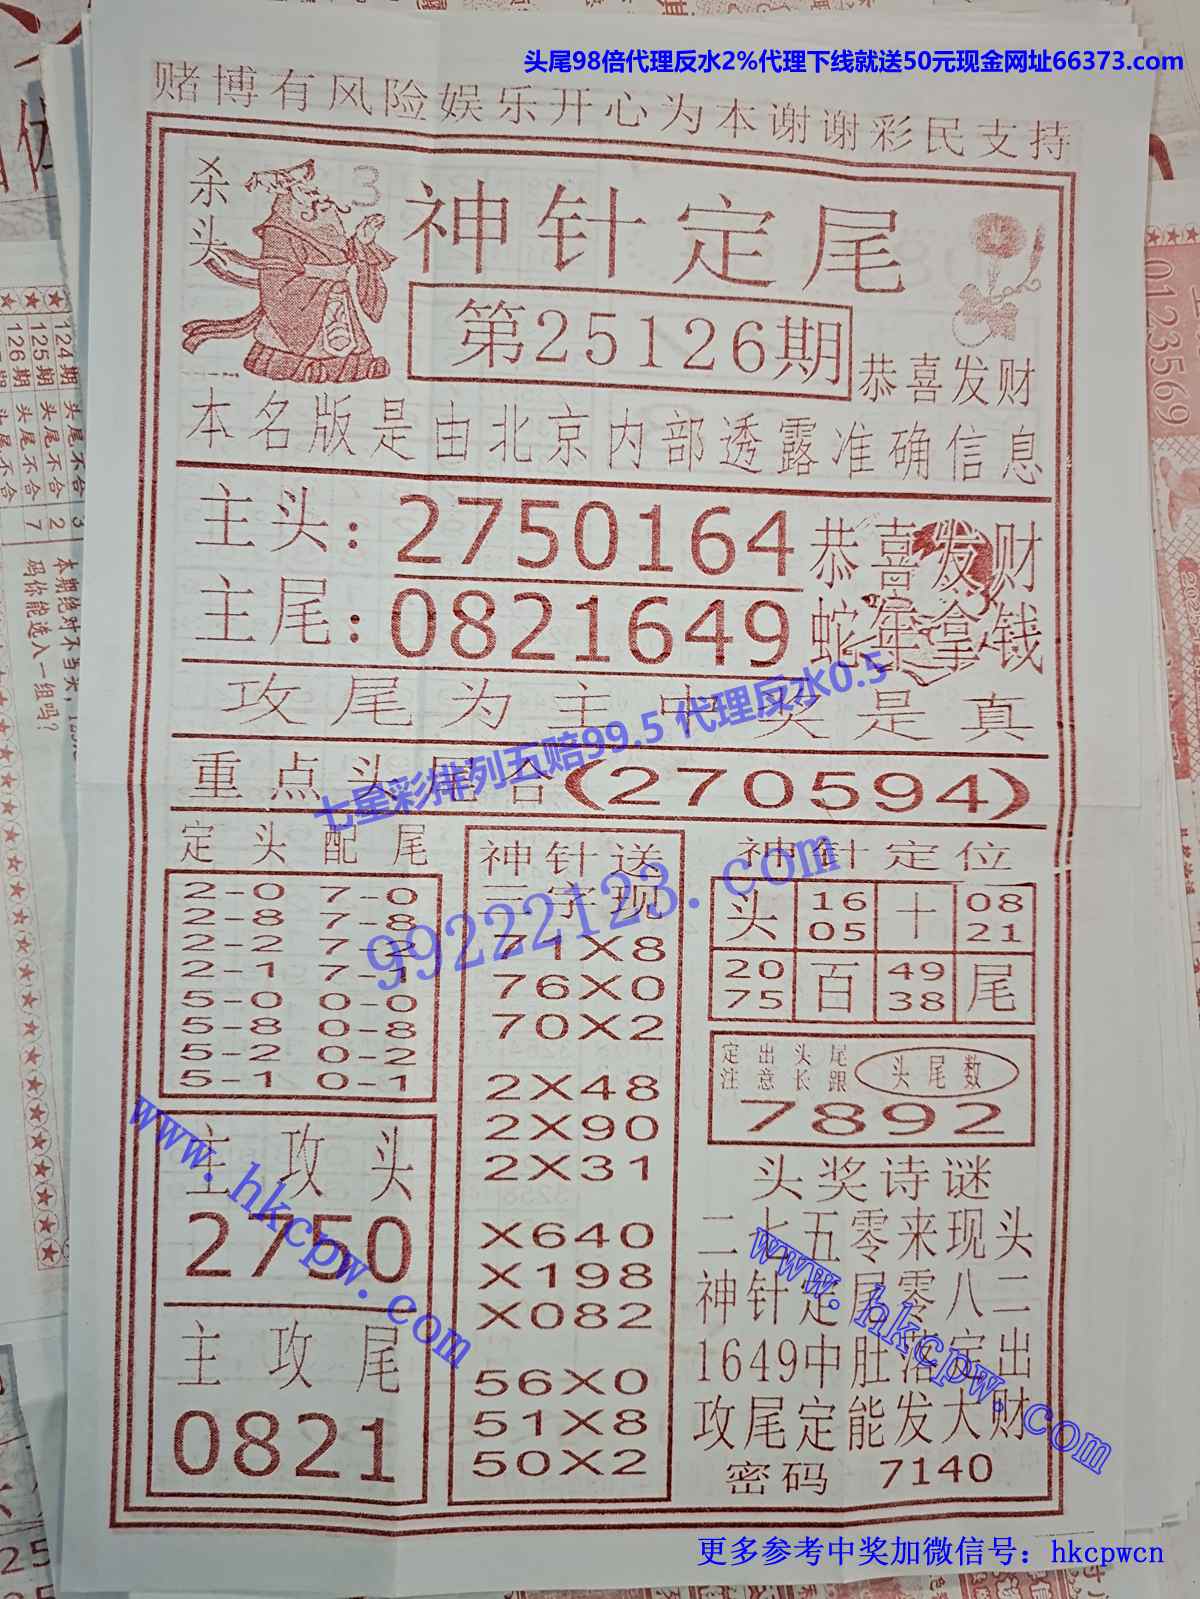 头尾98倍代理反水2%代理下线就送50元现金网址66373.com
赌博有风险娱乐开心为本谢谢彩民支持
杀头 3
神针定尾
第25126期
恭喜发财
本名版是由北京内部透露准确信息
主头:2750164 恭喜发财
主尾:0821649 蛇年拿钱
攻尾为主中奖是真
七星彩排列五赔99.5 代理反水0.5
重点头尾合(270594)
99222123.com
定头配尾
2-0 7-0
2-8 7-8
2-2 7-2
2-1 7-1
5-0 0-0
5-8 0-8
5-2 0-2
5-1 0-1
主攻头
2750
主攻尾
0821
www.hkcpw.com
神针送
三字现
71X8
76X0
70X2
2X48
2X90
2X31
X640
X198
X082
56X0
51X8
50X2
神针定位
头 16 05 十 08 21
20 75 百 49 38 尾
定出头尾
注意长跟
头尾数
7892
头奖诗谜
二七五零来现头
神针定尾零八二
1649中肚落定出
攻尾定能发大财
密码 7140
www.hkcpw.com
更多参考中奖加微信号：hkcpwcn
0123569
124期 头尾不合 3
125期 头尾不合 2
126期 头尾不合 7
本期绝对不当头,
码你能选入一组吗?